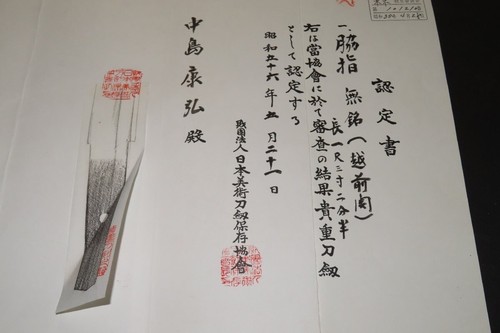 認定書
一、脇指 無銘(越前関)
長一尺三寸二分半
右は當協會に於て審査の結果貴重刀劔
として認定する
昭和五十六年五月二十一日
財團法人日本美術刀劔保存協會
中島康弘殿